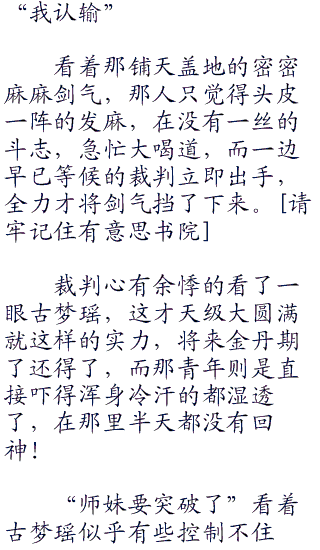 “我认输”
看着那铺天盖地的密密
麻麻剑气，那人只觉得头皮
一阵的发麻，在没有一丝的
斗志，急忙大喝道，而一边
早已等候的裁判立即出手，
全力才将剑气挡了下来。[请
牢记住有意思书院]
裁判心有余悸的看了一
眼古梦瑶，这才天级大圆满
就这样的实力，将来金丹期
了还得了，而那青年则是直
接吓得浑身冷汗的都湿透
了，在那里半天都没有回
神！
“师妹要突破了”看着
古梦瑶似乎有些控制不住